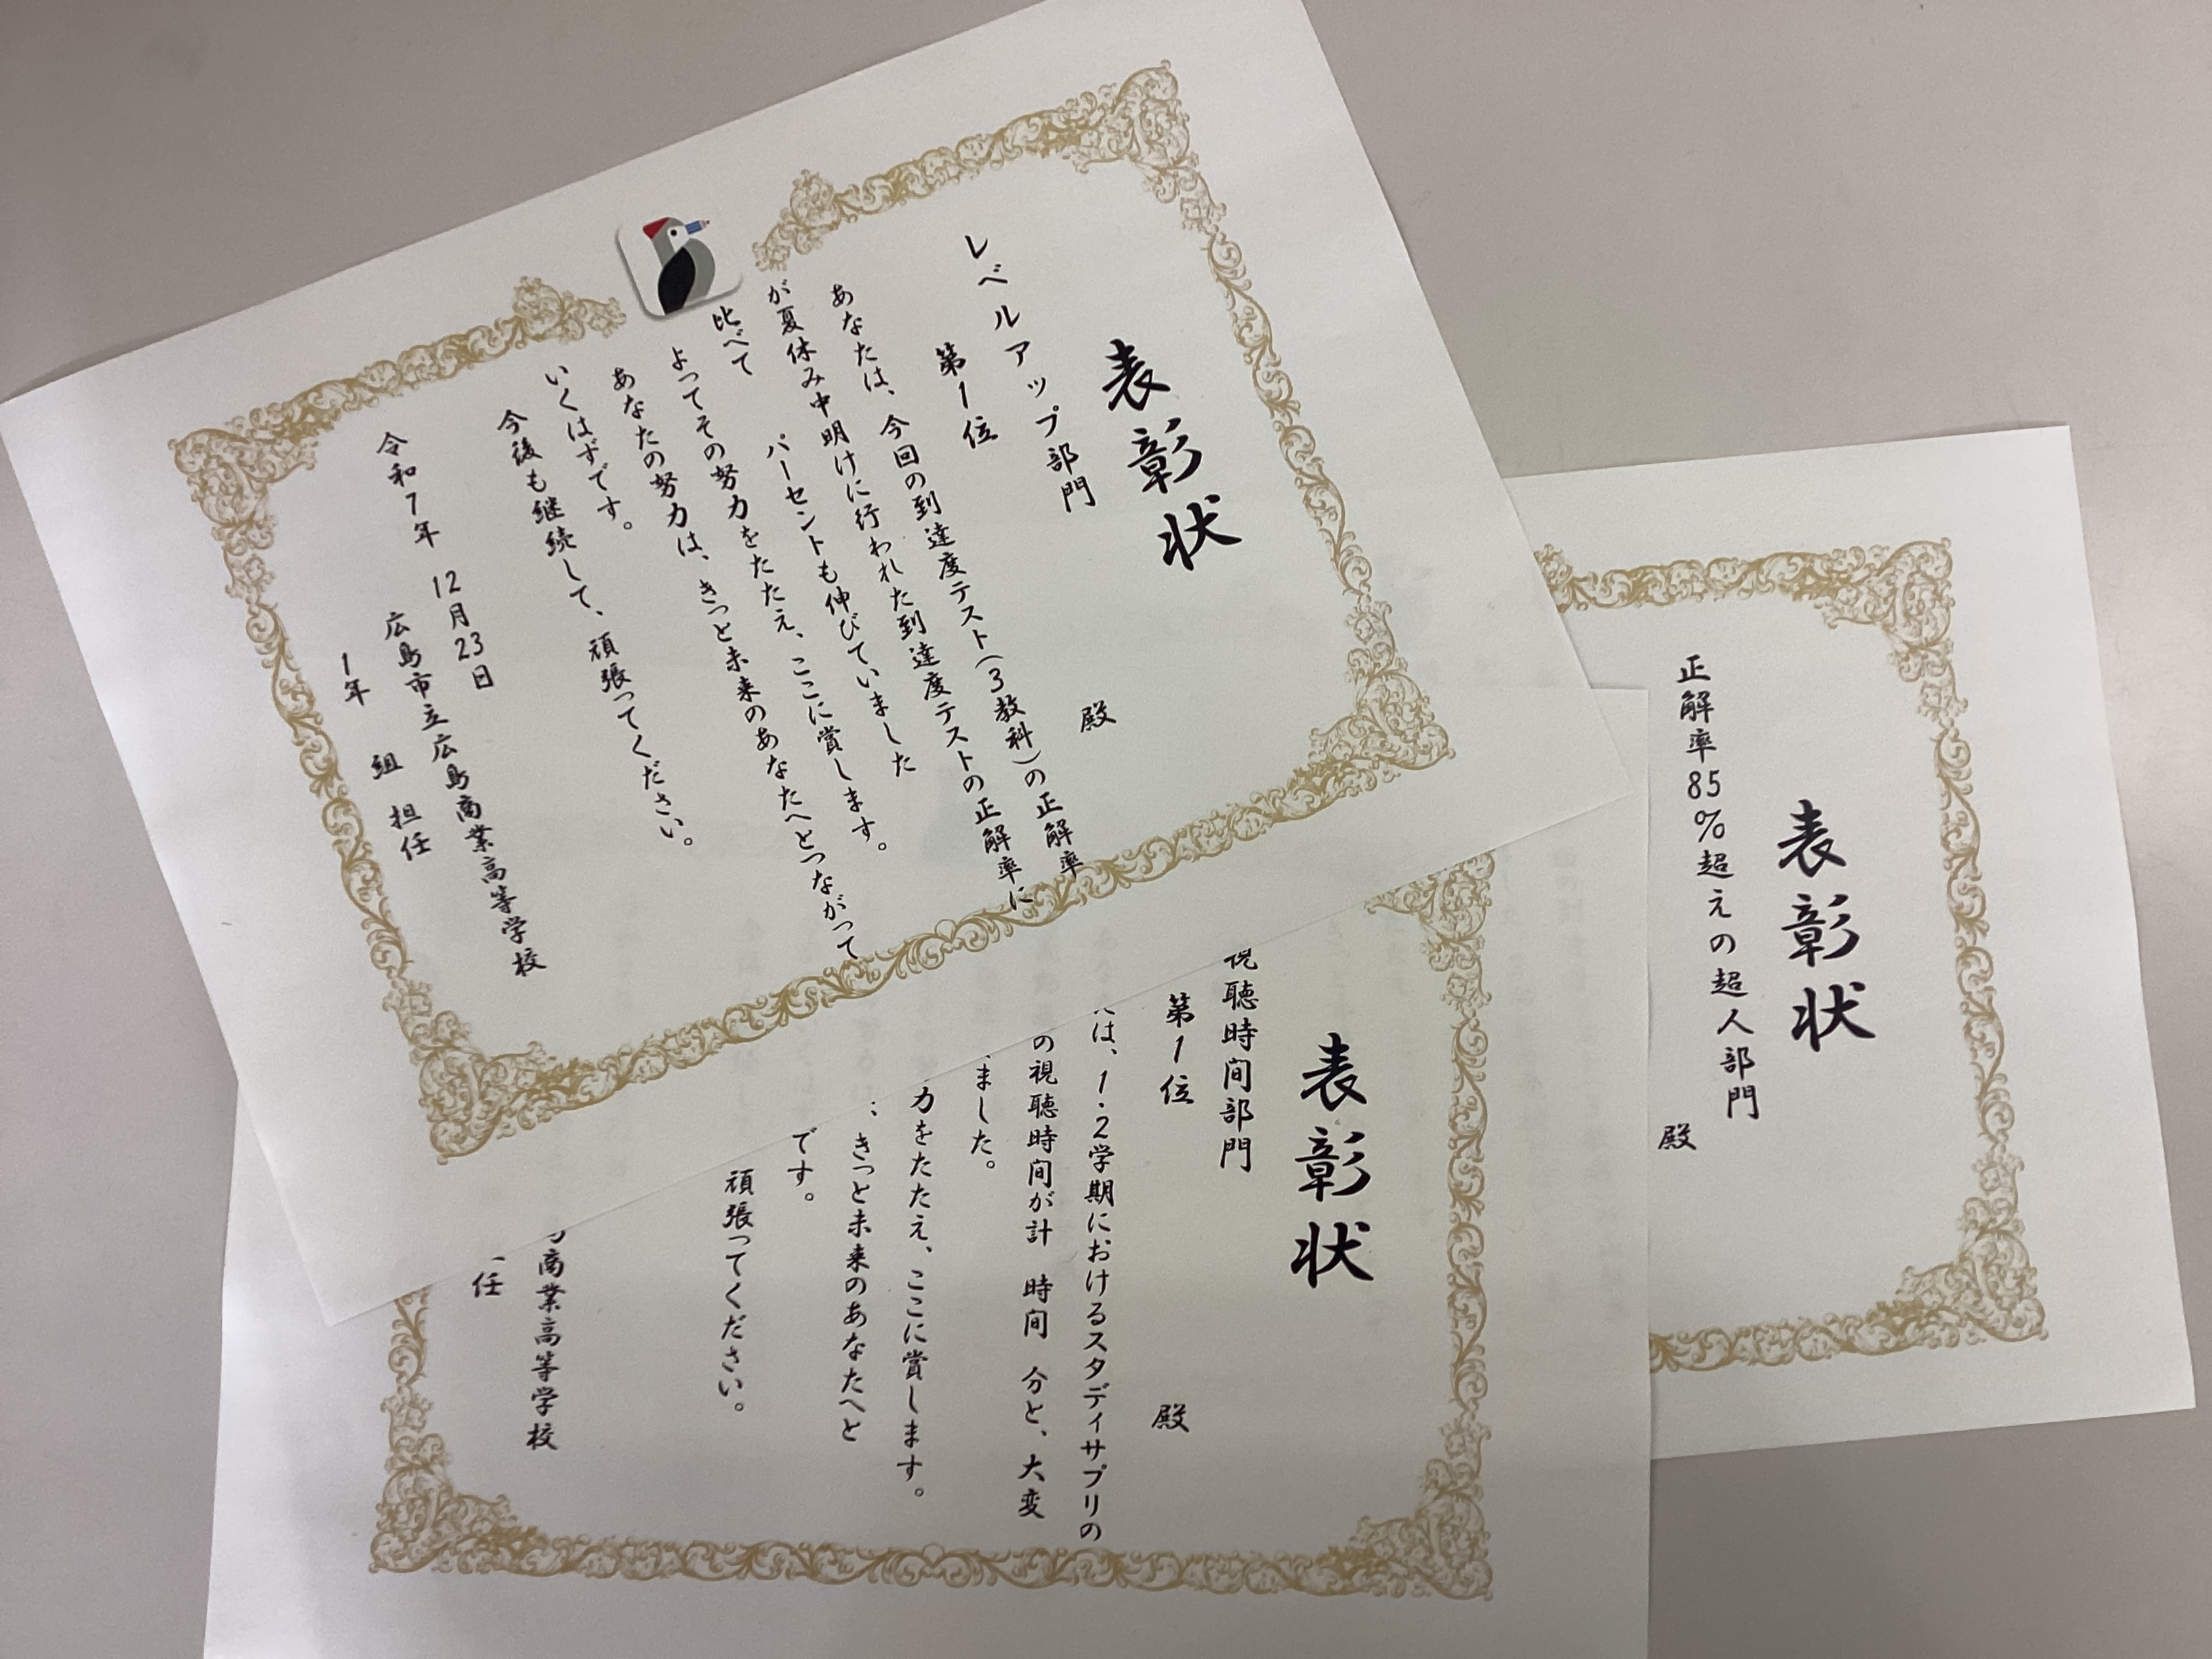 表彰状
レベルアップ部門
第1位 殿
あなたは、今回の到達度テスト(3教科)の正解率
が夏休み中明けに行われた到達度テストの正解率に
比べて パーセントも伸びていました
よってその努力をたたえ、ここに賞します。
あなたの努力は、きっと未来のあなたへとつながって
いくはずです。
今後も継続して、頑張ってください。
令和7年 12月23日
広島市立広島商業高等学校
1年 組 担任
表彰状
正解率85%超えの超人部門
殿
表彰状
視聴時間部門
第1位 殿
は、1・2学期におけるスタディサプリの
の視聴時間が計 時間 分と、大変
ました。
力をたたえ、ここに賞します。
、きっと未来のあなたへと
です。
頑張ってください。
商業高等学校
任